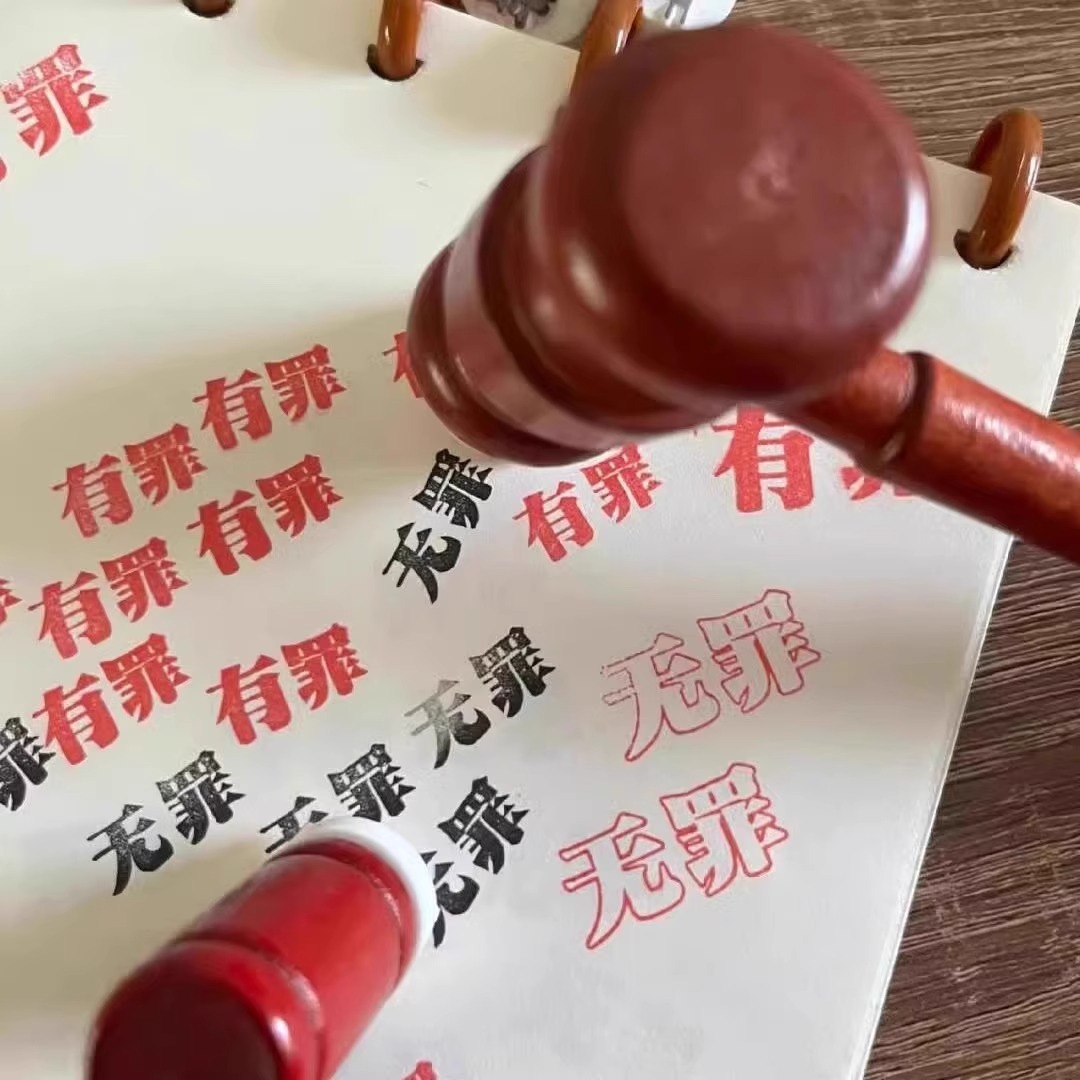 罪
有罪
有罪
有罪
有罪
有罪
有
无罪
有罪
有罪
有罪
无罪
无罪
罪
无罪
无罪
无罪
无罪